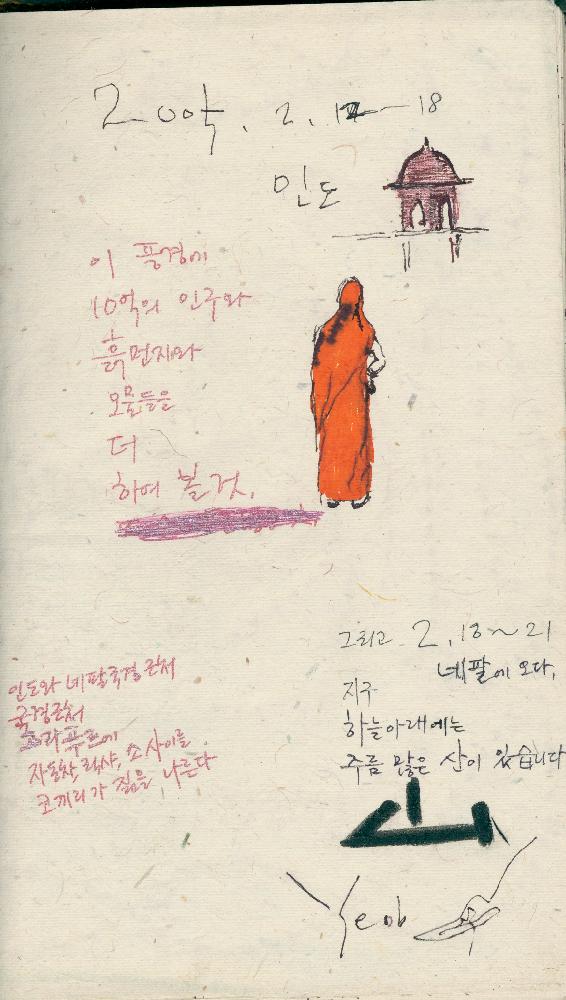 2. 12~18
인도
이 풍경에
10억의 인구와
흙먼지와
오물들을
더
하여 볼 것.
그리고 2. 18~21
네팔에 오다.
지구
하늘아래에는
주름 많은 산이 있습니다
인도와 네팔국경 근처
국경근처
고라푸르에
자동차, 릭샤, 소 사이를
코끼리가 짐을 나른다
山
Yeob